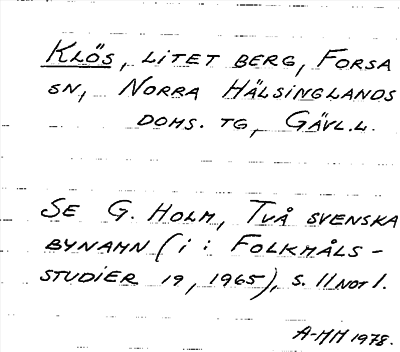 KLÖS, LITET BERG, FORSA
SN, NORRA HÄLSINGLANDS
DOMS. TG, GÄVL.L.
SE G. HOLM, TVÅ SVENSKA
BYNAMN (i : FOLKMÅLS-
STUDIER 19, 1965), S. 11 NOT 1.
A-MH 1978.